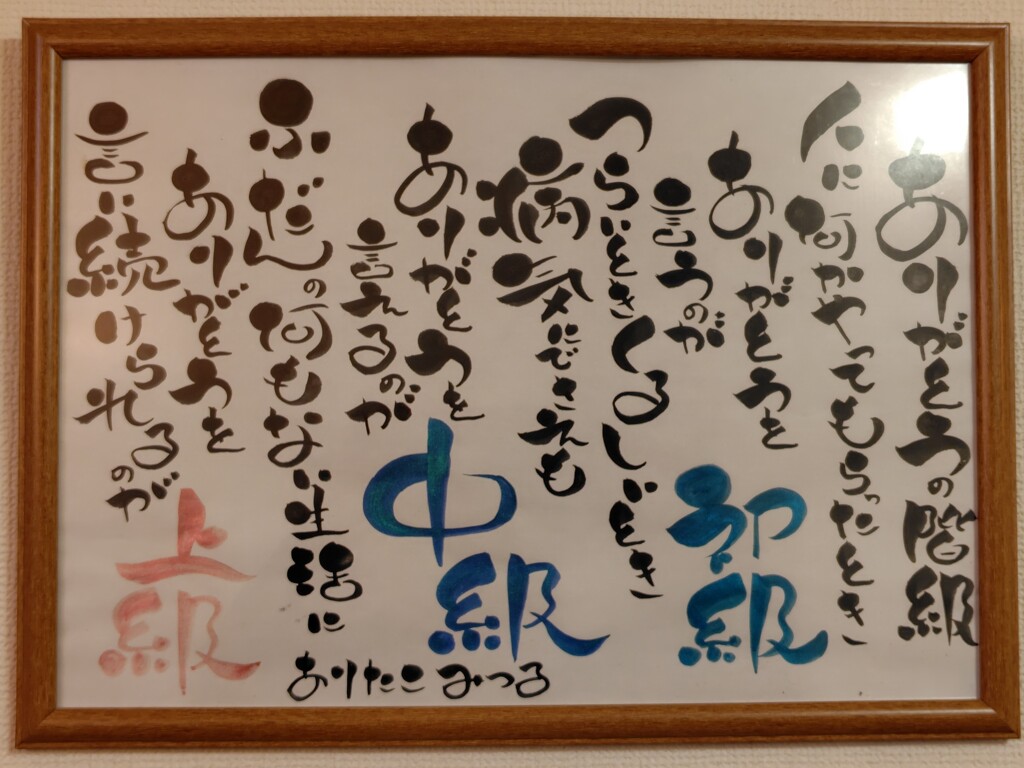 ありがとうの階級
人に何かやってもらったとき
ありがとうを
言うのが
初級
つらいときくるしいとき
病気にでさえも
ありがとうを
言えるのが
中級
ふだんの何もない生活に
ありがとうを
言い続けられるのが
上級
ありたこ みつる